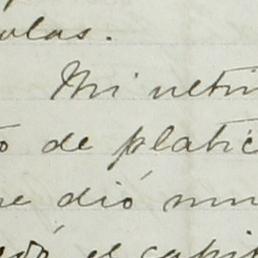 olas.
Mi ultim
o de platic
e dió mu
el capit